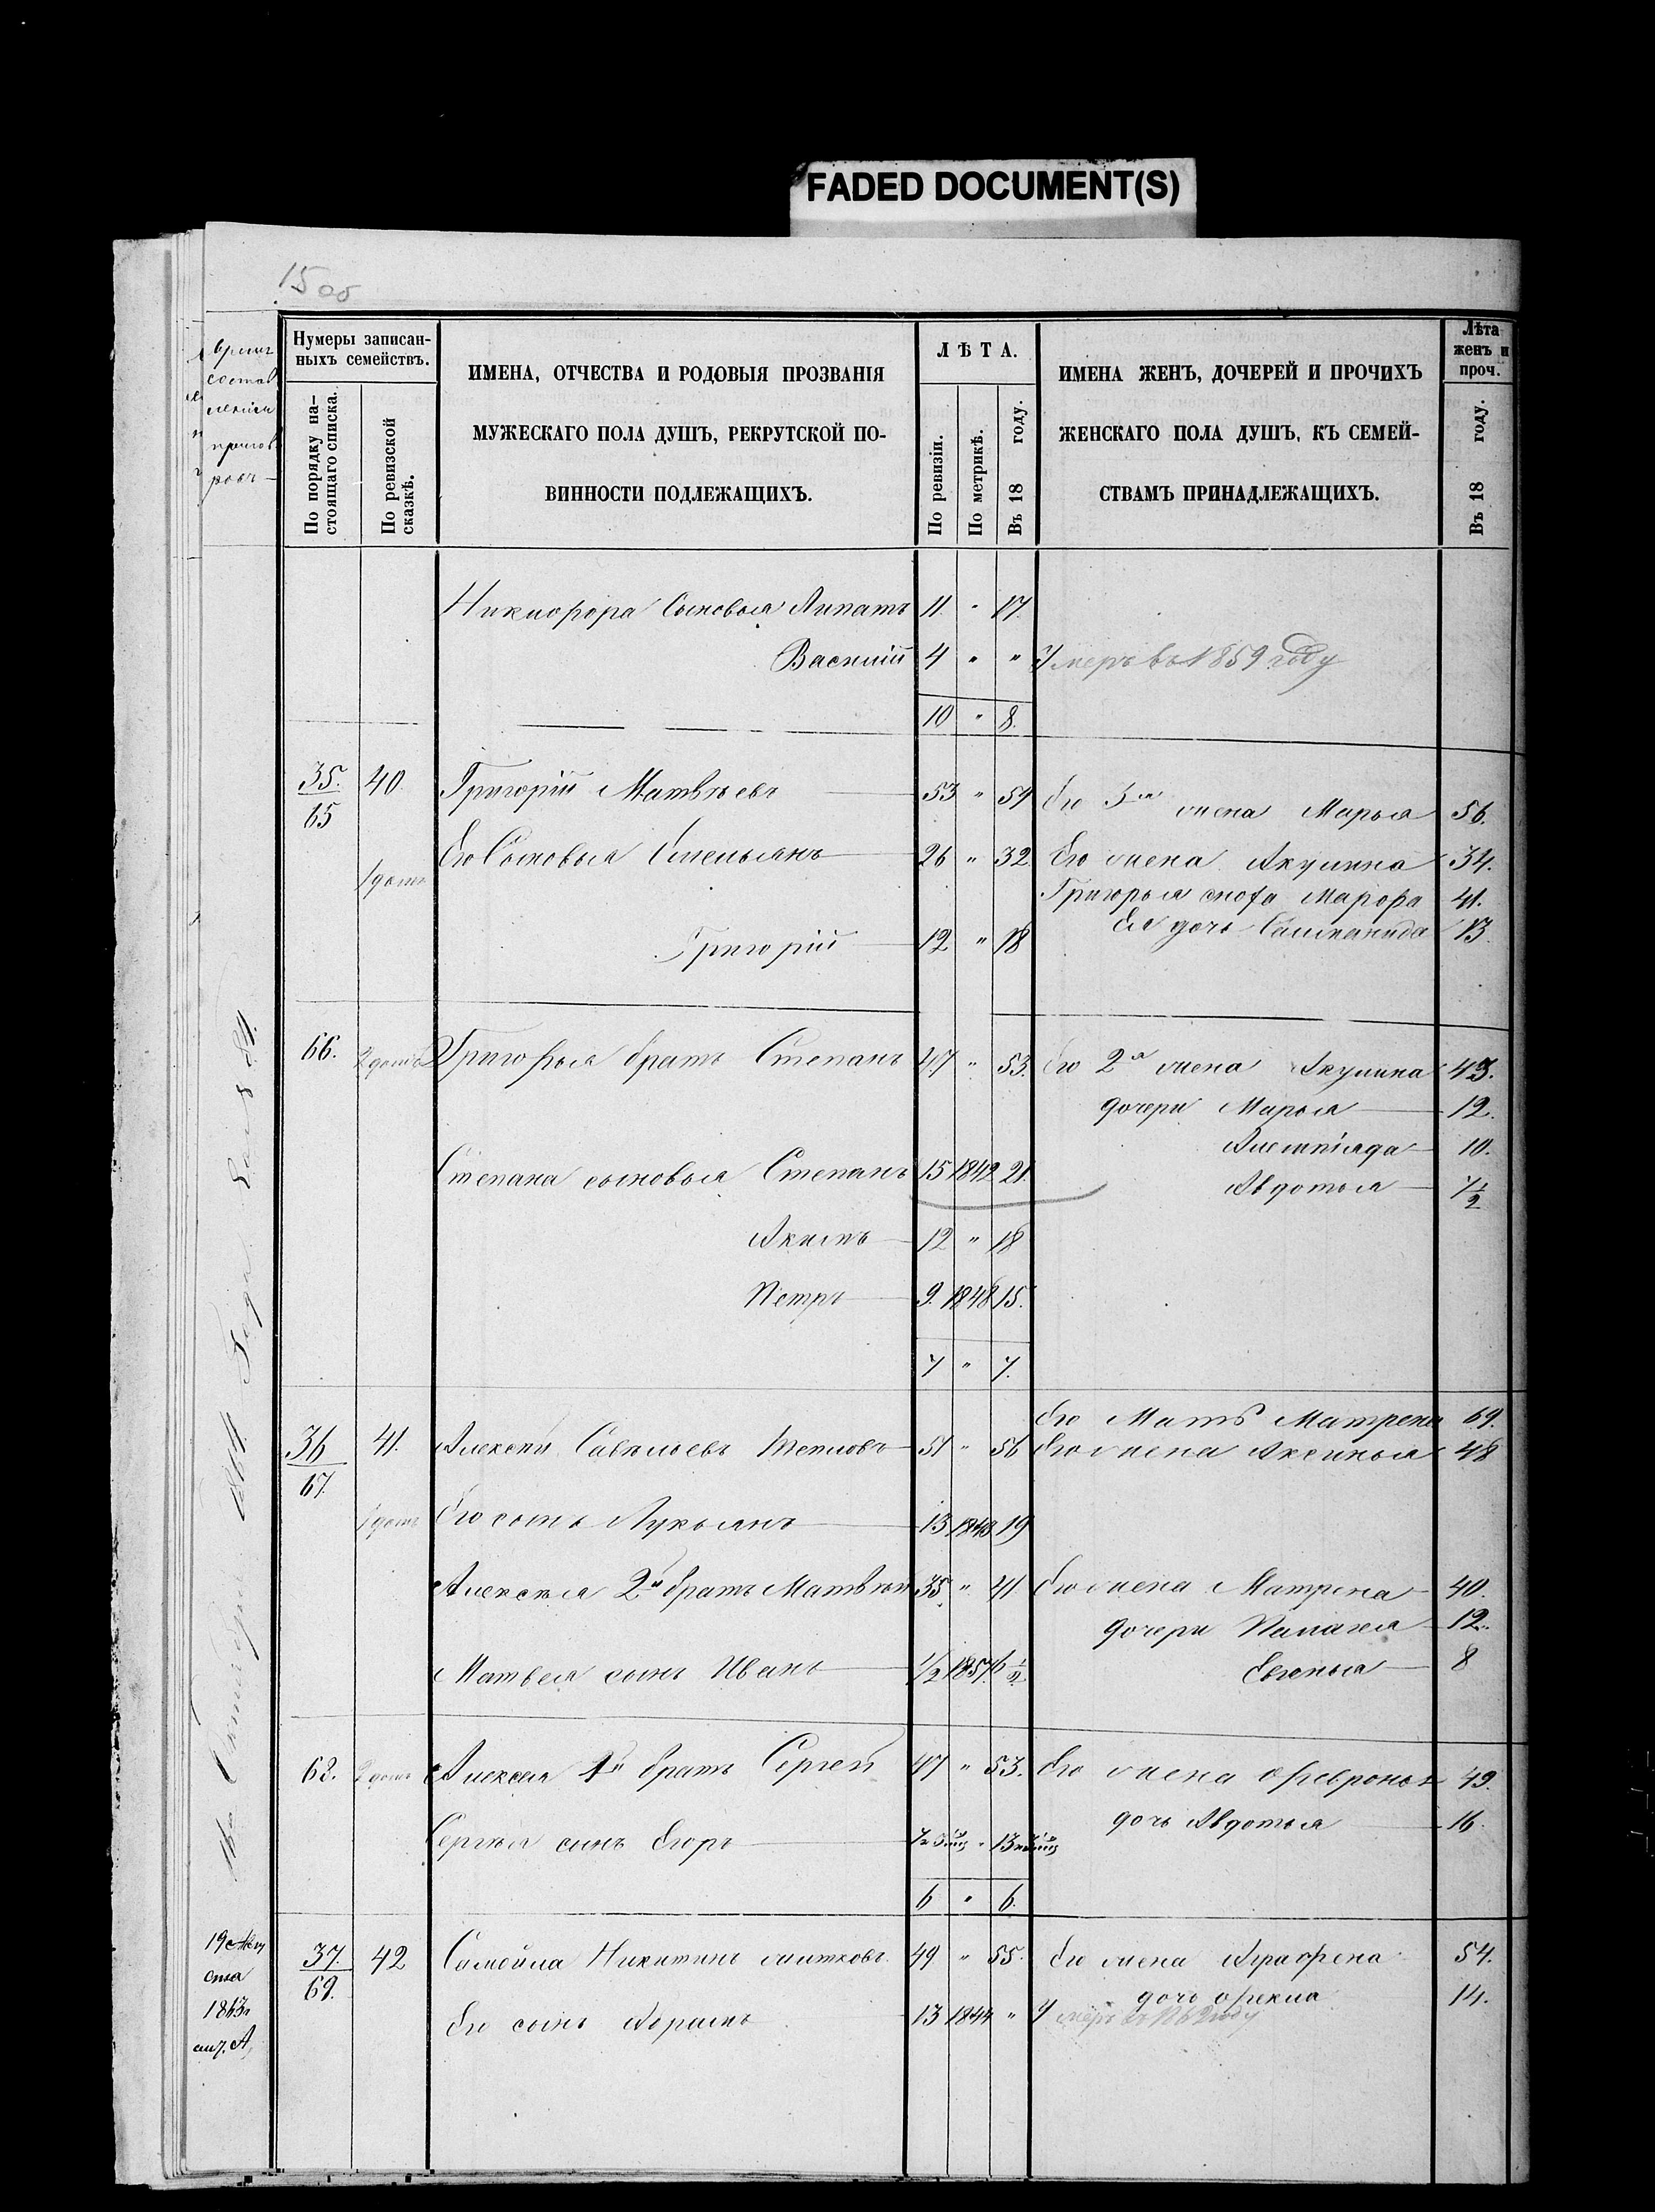 FADED DOCUMENT(S)
15 об
время
состав
ления
пригов
ровъ
Нумеры записан-
ныхъ семействъ.
По порядку на-
стоящаго списка.
По ревизской
сказкѣ.
ИМЕНА, ОТЧЕСТВА И РОДОВЫЯ ПРОЗВАНІЯ
МУЖЕСКАГО ПОЛА ДУШЪ, РЕКРУТСКОЙ ПО-
ВИННОСТИ ПОДЛЕЖАЩИХЪ.
ЛѢТА.
По ревизіи.
По метрикѣ.
Въ 18 году.
ИМЕНА ЖЕНЪ, ДОЧЕРЕЙ И ПРОЧИХЪ
ЖЕНСКАГО ПОЛА ДУШЪ, КЪ СЕМЕЙ-
СТВАМЪ ПРИНАДЛЕЖАЩИХЪ.
Лѣта
женъ и
проч.
Въ 18 году.
Никифора Сыновья Липатъ 11 " 17.
Василий 4 " " Умеръ въ 1859 году
10 " 8.
35. 40. Григорій Матвѣевъ 53 " 59 Его 3я жена Марья 56.
65
Его Сыновья Емельянъ 26 " 32 Его жена Акулина 34.
1 домъ
Григорья сноха Марфа 41.
Григорій 12 " 18 Ея дочь Салманида 13.
66. 2 домъ Григорья братъ Степанъ 47 " 53. Его 2я жена Акулина 43.
дочери Марья 12.
Алемпіяда 10.
Степана сыновья Степанъ 15 1842 21.
Авдотья 7 1/2
Акимъ 12 " 18
Петръ 9. 1848 15.
7 " 7.
Его Мать Матрена 69.
36 41. Алексѣй Савельевъ Тепловъ 51 " 56 Его жена Аксинья 48
67.
1 домъ Его сынъ Лукьянъ 13 1843 19
Алексѣя 2й братъ Матвѣй 35. " 41 Его жена Матрена 40.
дочери Палагея 12.
Матвея сынъ Иванъ 1/2 1857. 6 1/2 Евгенья 8
68. 2 домъ Алексея 1й братъ Сергей 47 " 53. Его жена Февронья 49.
дочь Авдотья 16.
Сергѣя сынъ Егоръ
6 " 6.
19 Авгу
ста
1863г
37. 42 Самойла Никитинъ 49 " 55. Его жена Аграфена 54.
69.
дочь Фекла 14.
Его сынъ Абрамъ 13 1844 " Умеръ въ 1862 году